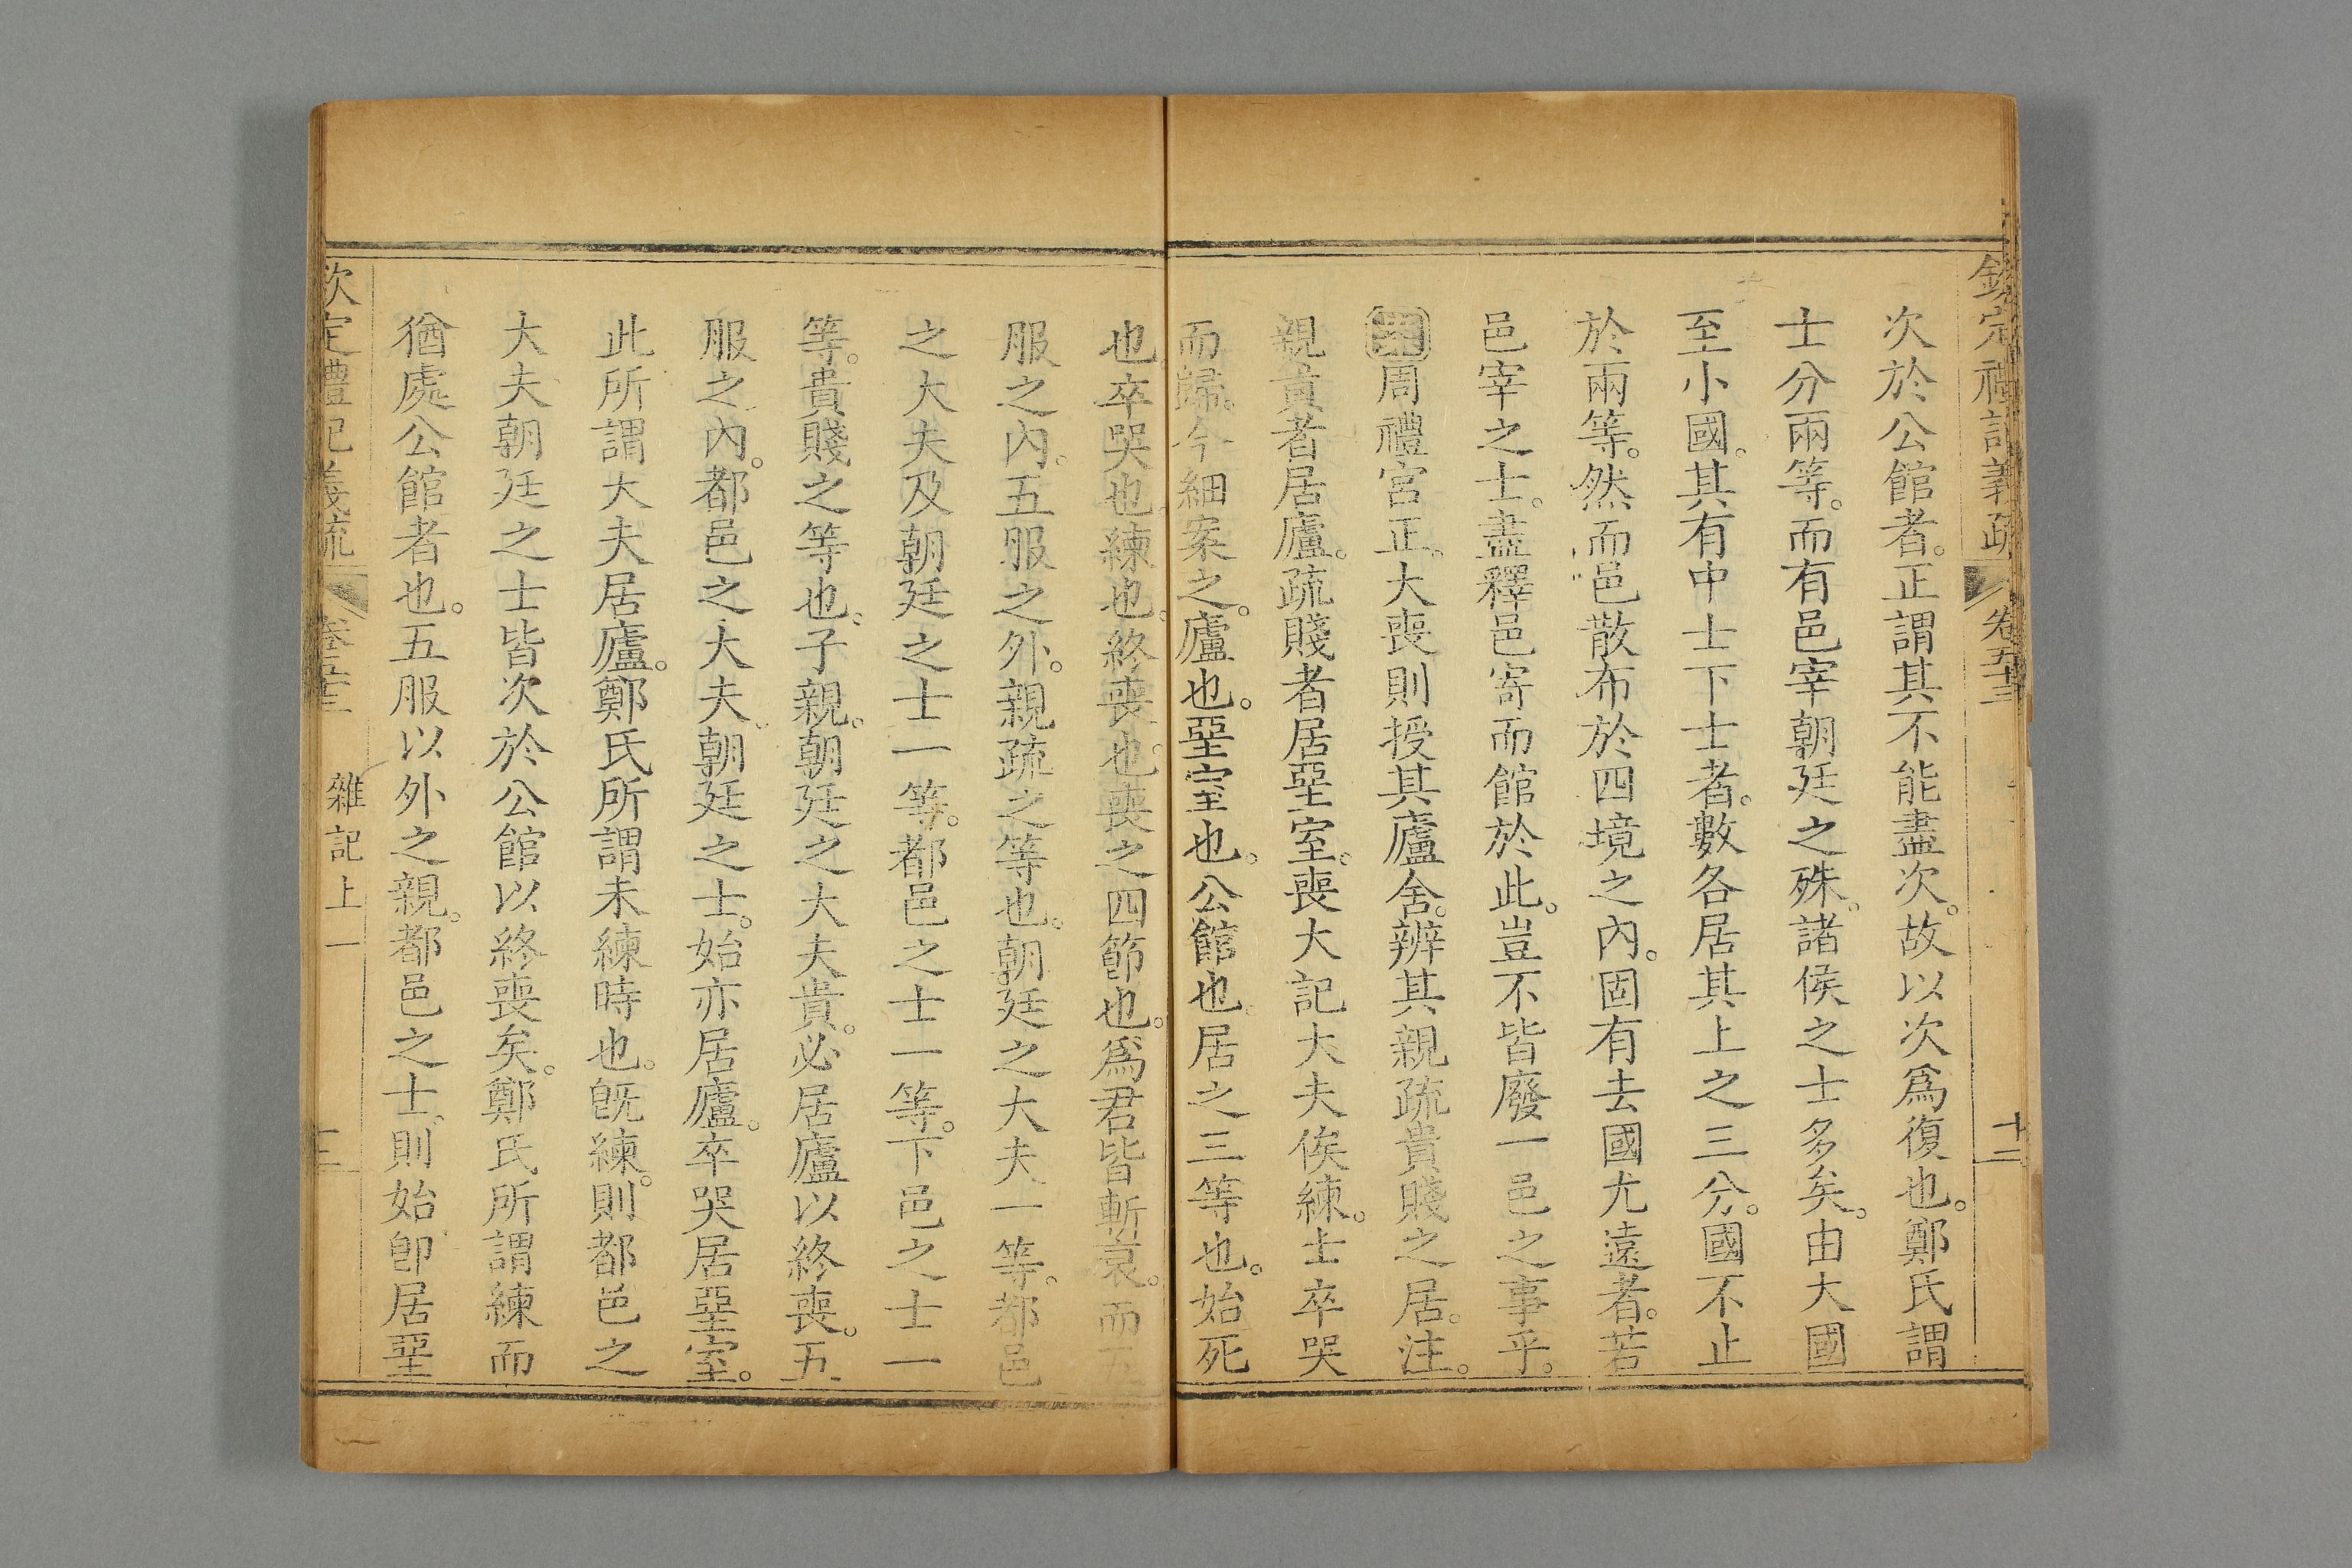 欽定禮記義疏 卷五十三 十二
次於公館者。正謂其不能盡次。故以次爲復也。鄭氏謂
士分兩等。而有邑宰朝廷之殊。諸侯之士多矣。由大國
至小國。其有中士下士者。數各居其上之三分。國不止
於兩等。然而邑散布於四境之內。固有去國尤遠者。若
邑宰之士。盡釋邑寄而館於此。豈不皆廢一邑之事乎。
案周禮宮正。大喪則授其廬舍。辨其親疏貴賤之居。注。
親貴者居廬。疏賤者居堊室。喪大記大夫俟練。士卒哭
而歸。今細案之。廬也。堊室也。公館也。居之三等也。始死
也。卒哭也。練也。終喪也。喪之四節也。爲君皆斬衰。而五
服之內。五服之外。親疏之等也。朝廷之大夫一等。都邑
之大夫及朝廷之士一等。都邑之士一等。下邑之士一
等。貴賤之等也。子親。朝廷之大夫貴。必居廬以終喪。五
服之內。都邑之大夫。朝廷之士。始亦居廬。卒哭居堊室。
此所謂大夫居廬。鄭氏所謂未練時也。旣練。則都邑之
大夫朝廷之士皆次於公館以終喪矣。鄭氏所謂練而
猶處公館者也。五服以外之親。都邑之士。則始卽居堊
欽定禮記義疏 卷五十三 雜記上一